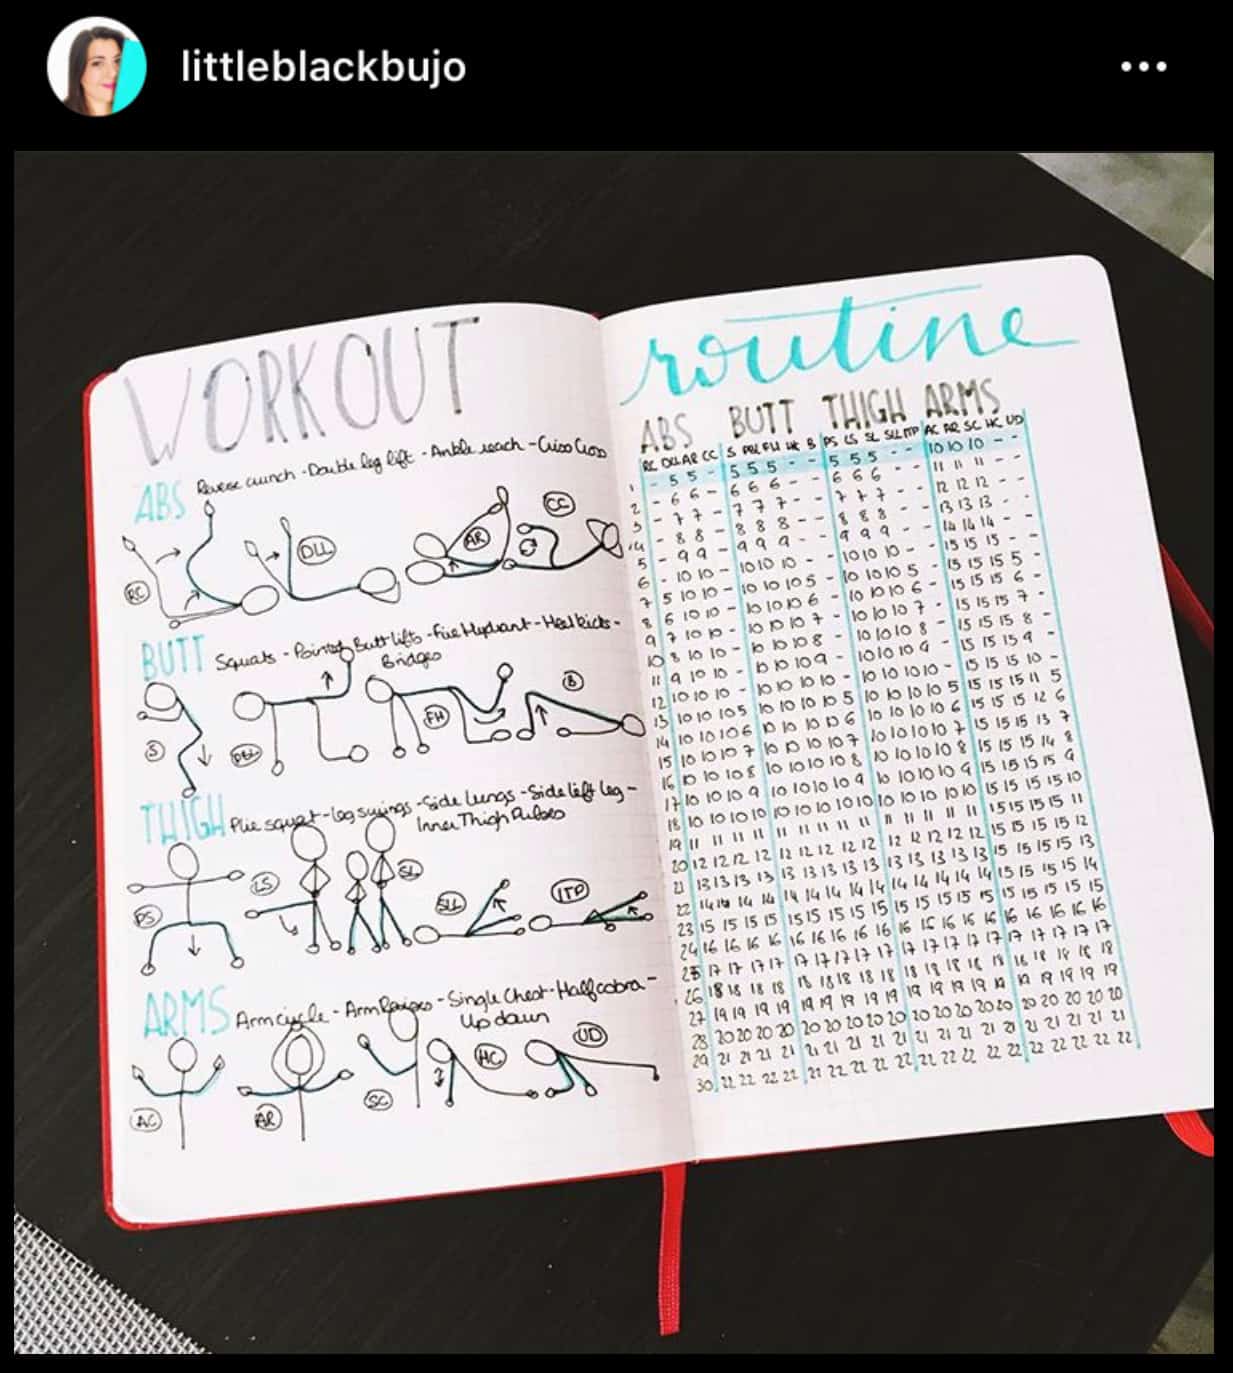 littleblackbujo
WORKOUT
routine
ABS Reverse crunch - Double leg lift - Ankle reach - Criss Cross
RC DLL AR CC
BUTT Squats - Pointed Butt lifts - Fire Hydrant - Heel kicks -
Bridges
S PBL FH B
THIGH Plie squat - leg swings - Side lungs - Side left leg -
Inner Thigh Pulses
PS LS SL SLL ITP
ARMS Arm cycle - Arm Raises - Single Chest - Half cobra -
Up down
AC AR SC HC UD
ABS BUTT THIGH ARMS
RC DLL AR CC S PBL FH HK B PS LS SL SLL ITP AC AR SC HC UD
1 - 5 5 - 5 5 5 - - 5 5 5 - - 10 10 10 - -
2 - 6 6 - 6 6 6 - - 6 6 6 - - 11 11 11 - -
3 - 7 7 - 7 7 7 - - 7 7 7 - - 12 12 12 - -
4 - 8 8 - 8 8 8 - - 8 8 8 - - 13 13 13 - -
5 - 9 9 - 9 9 9 - - 9 9 9 - - 14 14 14 - -
6 - 10 10 - 10 10 10 - 10 10 10 - - 15 15 15 - -
7 5 10 10 - 10 10 10 5 - 10 10 10 5 - 15 15 15 5 -
8 6 10 10 - 10 10 10 6 - 10 10 10 6 - 15 15 15 6 -
9 7 10 10 - 10 10 10 7 - 10 10 10 7 - 15 15 15 7 -
10 8 10 10 - 10 10 10 8 - 10 10 10 8 - 15 15 15 8 -
11 9 10 10 - 10 10 10 9 - 10 10 10 9 - 15 15 15 9 -
12 10 10 10 - 10 10 10 10 - 10 10 10 10 - 15 15 15 10 -
13 10 10 10 5 10 10 10 10 5 10 10 10 10 5 15 15 15 11 5
14 10 10 10 6 10 10 10 10 6 10 10 10 10 6 15 15 15 12 6
15 10 10 10 7 10 10 10 10 7 10 10 10 10 7 15 15 15 13 7
16 10 10 10 8 10 10 10 10 8 10 10 10 10 8 15 15 15 14 8
17 10 10 10 9 10 10 10 10 9 10 10 10 10 9 15 15 15 15 9
18 10 10 10 10 10 10 10 10 10 10 10 10 10 10 15 15 15 15 10
19 11 11 11 11 11 11 11 11 11 11 11 11 11 11 15 15 15 15 11
20 12 12 12 12 12 12 12 12 12 12 12 12 12 12 15 15 15 15 12
21 13 13 13 13 13 13 13 13 13 13 13 13 13 13 15 15 15 15 13
22 14 14 14 14 14 14 14 14 14 14 14 14 14 14 15 15 15 15 14
23 15 15 15 15 15 15 15 15 15 15 15 15 15 15 15 15 15 15 15
24 16 16 16 16 16 16 16 16 16 16 16 16 16 16 16 16 16 16 16
25 17 17 17 17 17 17 17 17 17 17 17 17 17 17 17 17 17 17 17
26 18 18 18 18 18 18 18 18 18 18 18 18 18 18 18 18 18 18 18
27 19 19 19 19 19 19 19 19 19 19 19 19 19 19 19 19 19 19 19
28 20 20 20 20 20 20 20 20 20 20 20 20 20 20 20 20 20 20 20
29 21 21 21 21 21 21 21 21 21 21 21 21 21 21 21 21 21 21 21
30 22 22 22 22 21 22 22 22 22 22 22 22 22 22 22 22 22 22 22